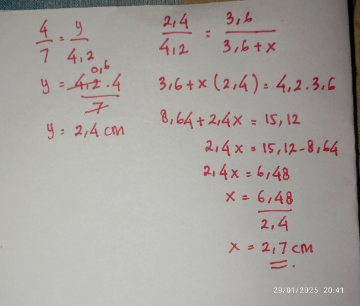 4/7 = y/4,2
y = 4,2 . 4 / 7
0,6
y = 2,4 cm
2,4/4,2 = 3,6/3,6+x
3,6+x (2,4) = 4,2 . 3,6
8,64 + 2,4x = 15,12
2,4x = 15,12 - 8,64
2,4x = 6,48
x = 6,48/2,4
x = 2,7 cm
29/01/2025 20:41